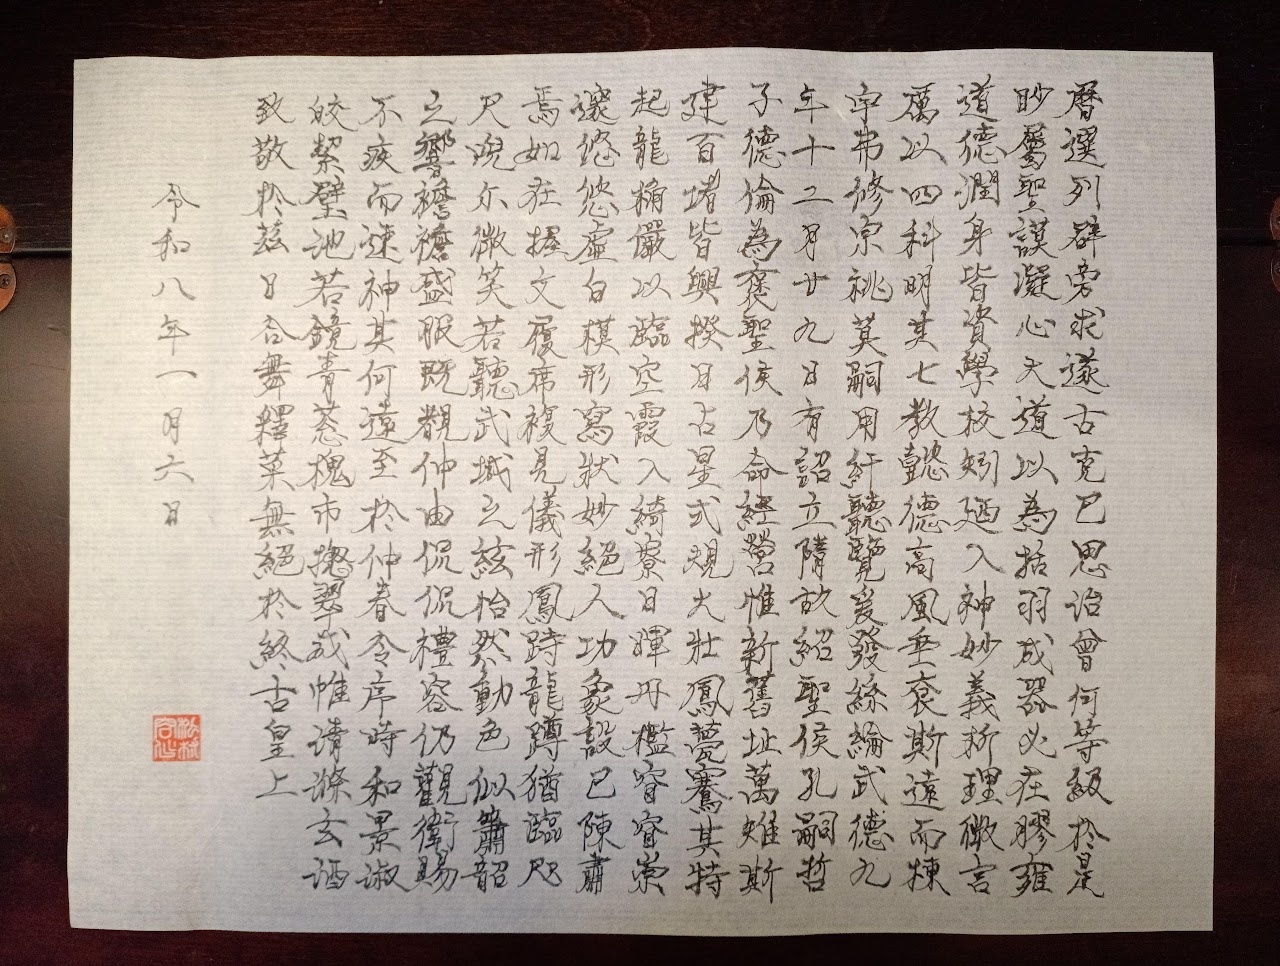 曆選列辟旁求遂古克巳思治曾何等級於是
眇屬聖謨凝心大道以為括羽成器必在膠雍
道德潤身皆資學校矧廼入神妙義析理微言
厲以四科明其七教懿德高風垂裒斯遠而棟
宇弗修宗祧莫嗣用紆聽覽爰發絲綸武德九
年十二月廿九日有詔立隋故紹聖侯孔嗣哲
子德倫為褒聖侯乃命經營惟新舊址萬雉斯
建百堵皆興揆日占星式規大壯鳳甍騫其特
起龍桷儼以臨空霞入綺寮日暉丹檻窅窅崇
邃悠悠虛白模形寫狀妙絕人功象設已陳肅
焉如在握文履席複見儀形鳳跱龍蹲猶臨咫
尺睨尓微笑若聽武城之絃怡然動色似簫韶
之響襜襜盛服既覩仲由侃侃禮容仍觀衛賜
不疾而速神其何遠至於仲春令序時和景淑
皎潔璧池若鏡青蔥槐市揔翠成帷清滌玄酒
致敬於茲日合舞釋菜無絕於終古皇上
令和八年一月六日